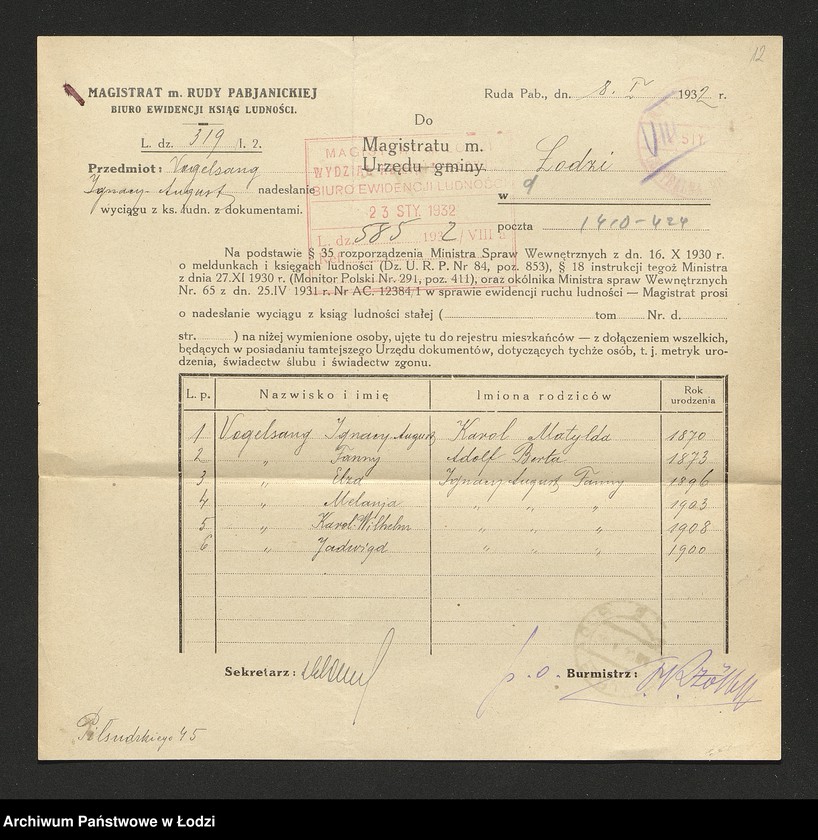 12
MAGISTRAT m. RUDY PABJANICKIEJ
BIURO EWIDENCJI KSIĄG LUDNOŚCI.
Ruda Pab., dn. 8. I 1932 r.
L. dz. 319 l. 2.
Do
Magistratu m. Lodzi
Urzędu gminy
Przedmiot: Vogelsang
Ignacy-August nadesłanie
wyciągu z ks. ludn. z dokumentami.
w
poczta
BIURO EWIDENCJI LUDNOŚCI
23 STY. 1932
L. dz. 585 1932 / VIII a
Na podstawie § 35 rozporządzenia Ministra Spraw Wewnętrznych z dn. 16. X 1930 r.
o meldunkach i księgach ludności (Dz. U. R. P. Nr 84, poz. 853), § 18 instrukcji tegoż Ministra
z dnia 27.XI 1930 r. (Monitor Polski Nr. 291, poz. 411), oraz okólnika Ministra spraw Wewnętrznych
Nr. 65 z dn. 25.IV 1931 r. Nr AC. 12384/1 w sprawie ewidencji ruchu ludności — Magistrat prosi
o nadesłanie wyciągu z ksiąg ludności stałej ( tom Nr. d.
str. ) na niżej wymienione osoby, ujęte tu do rejestru mieszkańców — z dołączeniem wszelkich,
będących w posiadaniu tamtejszego Urzędu dokumentów, dotyczących tychże osób, t. j. metryk uro-
dzenia, świadectw ślubu i świadectw zgonu.
L. p. Nazwisko i imię Imiona rodziców Rok urodzenia
1 Vogelsang Ignacy-August Karol Matylda 1870
2 " Fanny Adolf Berta 1873
3 " Elza Ignacy-August Fanny 1896
4 " Melanja " " " 1903
5 " Karol-Wilhelm " " " 1908
6 " Jadwiga " " " 1900
Sekretarz:
p. o. Burmistrz:
Piłsudskiego 45
Archiwum Państwowe w Łodzi